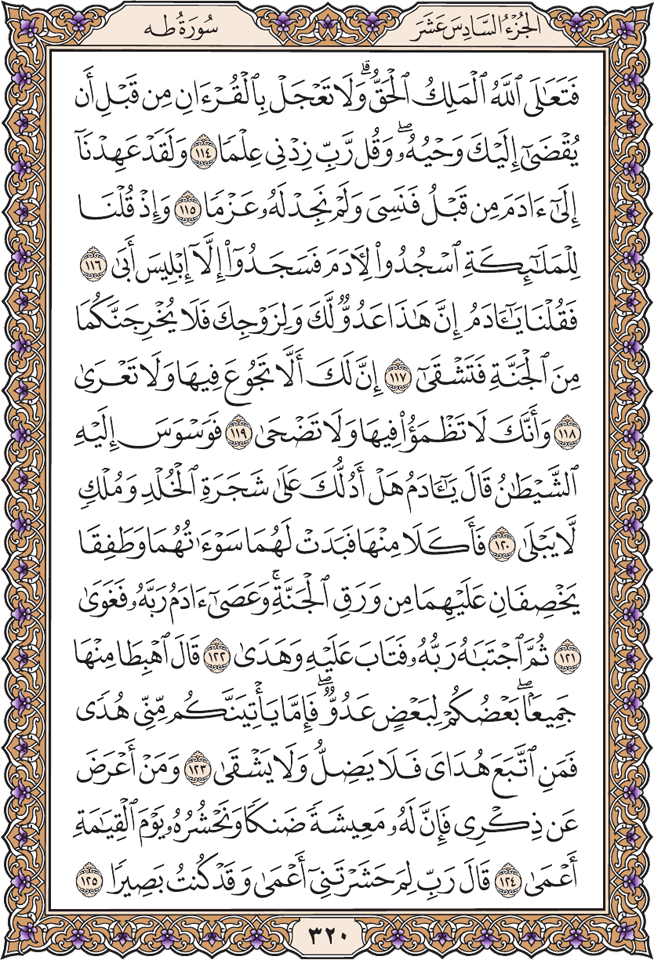 الجزء السادس عشر
سورة طه
فَتَعَٰلَى ٱللَّهُ ٱلۡمَلِكُ ٱلۡحَقُّۗ وَلَا تَعۡجَلۡ بِٱلۡقُرۡءَانِ مِن قَبۡلِ أَن
يُقۡضَىٰٓ إِلَيۡكَ وَحۡيُهُۥۖ وَقُل رَّبِّ زِدۡنِي عِلۡمٗا ١١٤ وَلَقَدۡ عَهِدۡنَآ
إِلَىٰٓ ءَادَمَ مِن قَبۡلُ فَنَسِيَ وَلَمۡ نَجِدۡ لَهُۥ عَزۡمٗا ١١٥ وَإِذۡ قُلۡنَا
لِلۡمَلَٰٓئِكَةِ ٱسۡجُدُواْ لِأٓدَمَ فَسَجَدُوٓاْ إِلَّآ إِبۡلِيسَ أَبَىٰ ١١٦
فَقُلۡنَا يَٰٓـَٔادَمُ إِنَّ هَٰذَا عَدُوّٞ لَّكَ وَلِزَوۡجِكَ فَلَا يُخۡرِجَنَّكُمَا
مِنَ ٱلۡجَنَّةِ فَتَشۡقَىٰٓ ١١٧ إِنَّ لَكَ أَلَّا تَجُوعَ فِيهَا وَلَا تَعۡرَىٰ
١١٨ وَأَنَّكَ لَا تَظۡمَؤُاْ فِيهَا وَلَا تَضۡحَىٰ ١١٩ فَوَسۡوَسَ إِلَيۡهِ
ٱلشَّيۡطَٰنُ قَالَ يَٰٓـَٔادَمُ هَلۡ أَدُلُّكَ عَلَىٰ شَجَرَةِ ٱلۡخُلۡدِ وَمُلۡكٖ
لَّا يَبۡلَىٰ ١٢٠ فَأَكَلَا مِنۡهَا فَبَدَتۡ لَهُمَا سَوۡءَٰتُهُمَا وَطَفِقَا
يَخۡصِفَانِ عَلَيۡهِمَا مِن وَرَقِ ٱلۡجَنَّةِۚ وَعَصَىٰٓ ءَادَمُ رَبَّهُۥ فَغَوَىٰ
١٢١ ثُمَّ ٱجۡتَبَٰهُ رَبُّهُۥ فَتَابَ عَلَيۡهِ وَهَدَىٰ ١٢٢ قَالَ ٱهۡبِطَا مِنۡهَا
جَمِيعَۢاۖ بَعۡضُكُمۡ لِبَعۡضٍ عَدُوّٞۖ فَإِمَّا يَأۡتِيَنَّكُم مِّنِّي هُدٗى
فَمَنِ ٱتَّبَعَ هُدَايَ فَلَا يَضِلُّ وَلَا يَشۡقَىٰ ١٢٣ وَمَنۡ أَعۡرَضَ
عَن ذِكۡرِي فَإِنَّ لَهُۥ مَعِيشَةٗ ضَنكٗا وَنَحۡشُرُهُۥ يَوۡمَ ٱلۡقِيَٰمَةِ
أَعۡمَىٰ ١٢٤ قَالَ رَبِّ لِمَ حَشَرۡتَنِيٓ أَعۡمَىٰ وَقَدۡ كُنتُ بَصِيرٗا ١٢٥
٣٢٠